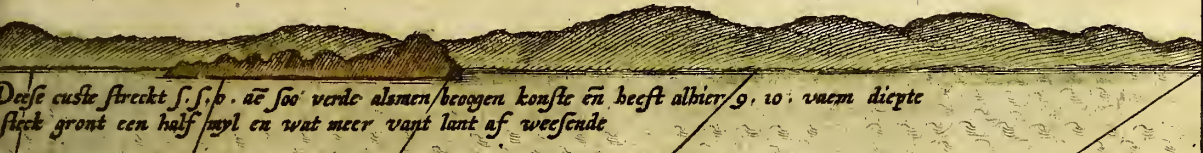 Deese custe streckt S.S.o. aē soo verde alsmen beoogen konste eñ heeft alhier 9. 10. vaem diepte
steck gront een half myl en wat meer vant lant af weesende